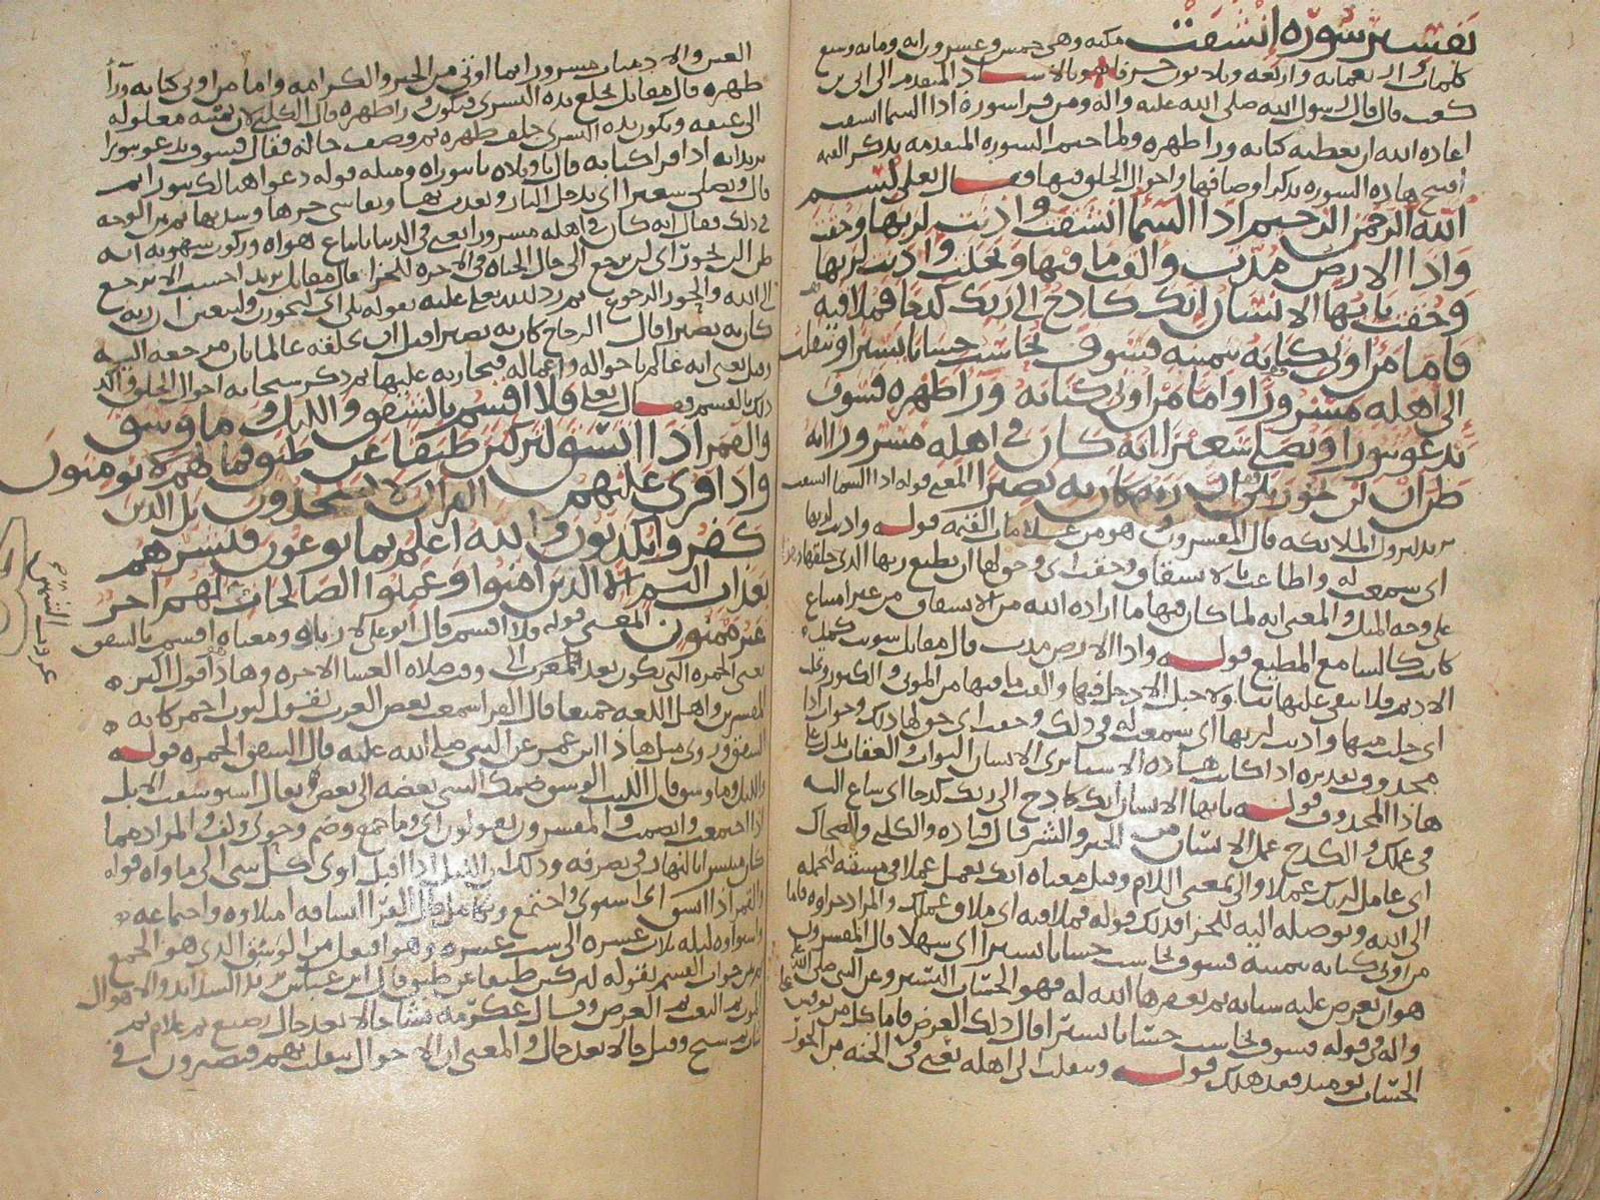 تفسير سورة انشقت مكيه وهي خمس وعشرون ايه ومايه وسبع
كلمات واربعمايه واربعه وثلاثون حرفا وبالاسناد المتقدم الى ابي بن
كعب قال قال رسول الله صلى الله عليه واله ومن قرا سورة اذا السما انشقت
اعاذه الله ان يعطيه كتابه ورا ظهره ولما ختم السوره المتقدمه بذكر القيمه
افتتح هاذه السوره بذكر اوصافها واحوال الخلق فيها فقال تعالى بسم
الله الرحمن الرحيم اذا السما انشقت واذنت لربها وحقت
واذا الارض مدت والقت ما فيها وتخلت واذنت لربها
وحقت يايها الانسان انك كادح الى ربك كدحا فملاقيه
فاما من اوتي كتابه بيمينه فسوف يحاسب حسابا يسيرا وينقلب
الى اهله مسرورا واما من اوتي كتابه ورا ظهره فسوف
يدعو ثبورا ويصلى سعيرا انه كان في اهله مسرورا انه
ظن ان لن يحور بلى ان ربه كان به بصيرا المعنى قوله اذا السما انشقت
يريد لنزول الملائكه قال المفسرون هو من علامات القيمه قوله واذنت لربها
اي سمعت له واطاعت بالانشقاق وحقت اي وحق لها ان تطيع ربها الذي خلقها
على وجه المثل والمعنى انه لما كان فيها ما اراده الله من الانشقاق من غير امتناع
كانت كالسامع المطيع قوله واذا الارض مدت قال مقاتل سويت كمد
الاديم فلا يبقى عليها بنا ولا جبل الا دخل فيها والقت ما فيها من الموتى والكنوز وتخلت
اي خلت منها واذنت لربها اي سمعت له في ذلك وحقت اي حق لها ذلك وجواب اذا
محذوف تقديره اذا كانت هاذه الاشيا يرى الانسان الثواب والعقاب يدل على
هاذا المحذوف قوله يايها الانسان انك كادح الى ربك كدحا اي ساع اليه
في عملك والكدح عمل الانسان من الخير والشر قال قتاده والكلبي والضحاك
اي عامل لربك عملا والى بمعنى اللام وقيل معناه انك تعمل عملا في مشقه لتحمله
الى الله وتوصله اليه للجزا فذلك قوله فملاقيه اي ملاق عملك والمراد جزاوه فاما
من اوتي كتابه بيمينه فسوف يحاسب حسابا يسيرا اي سهلا قال المفسرون
هو ان تعرض عليه سياته ثم يغفرها الله له فهو الحساب اليسير وعن النبي صلى الله عليه
واله في قوله فسوف يحاسب حسابا يسيرا قال ذلك العرض فاما كل من نوقش
الحساب يوميذ فقد هلك قوله وينقلب الى اهله يعني في الجنه من الحور
العين والادميات مسرورا بما اوتي من الخير والكرامه واما من اوتي كتابه ورآ
ظهره قال مقاتل تخلع يده اليسرى فتكون ورا ظهره قال الكلبي لان يمينه مغلوله
الى عنقه وتكون يده اليسرى خلف ظهره ثم وصف حاله فقال فسوف يدعو ثبورا
يريد انه اذا قرا كتابه قال يا ويلاه يا ثبوراه ومثله قوله دعوا هنالك ثبورا ثم
قال ويصلى سعيرا اي يدخل النار ويعذب بها ويقاسي حرها وشدتها ثم بين الوجه
في ذلك فقال انه كان في اهله مسرورا يعني في الدنيا باتباع هواه وركوب شهوته انه
ظن ان لن يحور اي لن يرجع الى حال الحياه في الاخره للجزا قال مقاتل يريد احسب الا يرجع
الى الله والحور الرجوع ثم رد الله تعالى عليه بقوله بلى اي ليحورن وليبعثن ان ربه
كان به بصيرا قال الزجاج كان به بصيرا قبل ان يخلقه عالما بان مرجعه اليه
وقيل يعني انه عالم باحواله واعماله فيجازيه عليها ثم ذكر سبحانه احوال الخلق واكد
ذلك بالقسم فقال تعالى فلا اقسم بالشفق والليل وما وسق
والقمر اذا اتسق لتركبن طبقا عن طبق فما لهم لا يومنون
واذا قرى عليهم القران لا يسجدون بل الذين
كفروا يكذبون والله اعلم بما يوعون فبشرهم
بعذاب اليم الا الذين امنوا وعملوا الصالحات لهم اجر
غير ممنون المعنى قوله فلا اقسم قال ابو علي لا زياده ومعناه اقسم بالشفق
يعني الحمره التي تكون بعد المغرب الى وقت صلاه العشا الاخره وهاذا قول اكثر
المفسرين واهل اللغه جميعا قال الفرا سمعت بعض العرب يقول لثوب احمر كانه
الشفق وروي مثل هاذا ابن عمر عن النبي صلى الله عليه قال الشفق الحمره قوله
والليل وما وسق قال الليث الوسق ضمك الشي بعضه الى بعض يقال استوسقت الابل
اذا اجتمعت وانضمت والمفسرون يقولون اي وما جمع وضم وحوى ولف والمراد بهما
كان منتشرا بالنهار في تصرفه وذلك ان الليل اذا اقبل اوى كل شي الى ماواه قوله
والقمر اذا اتسق اي استوى واجتمع وتكامل قال الفرا اتساقه امتلاوه واجتماعه
واستواوه ليله ثلاث عشره الى ست عشره وهو افتعل من الوسق الذي هو الجمع
ثم ذكر جواب القسم بقوله لتركبن طبقا عن طبق قال ابن عباس يريد الشدايد والاهوال
الموت ثم البعث ثم العرض وقال عكرمه يشا حالا بعد حال رضيع ثم غلام ثم
شاب ثم شيخ وقيل حالا بعد حال والمعنى ان الاحوال تنقلب بهم فيصيرون في